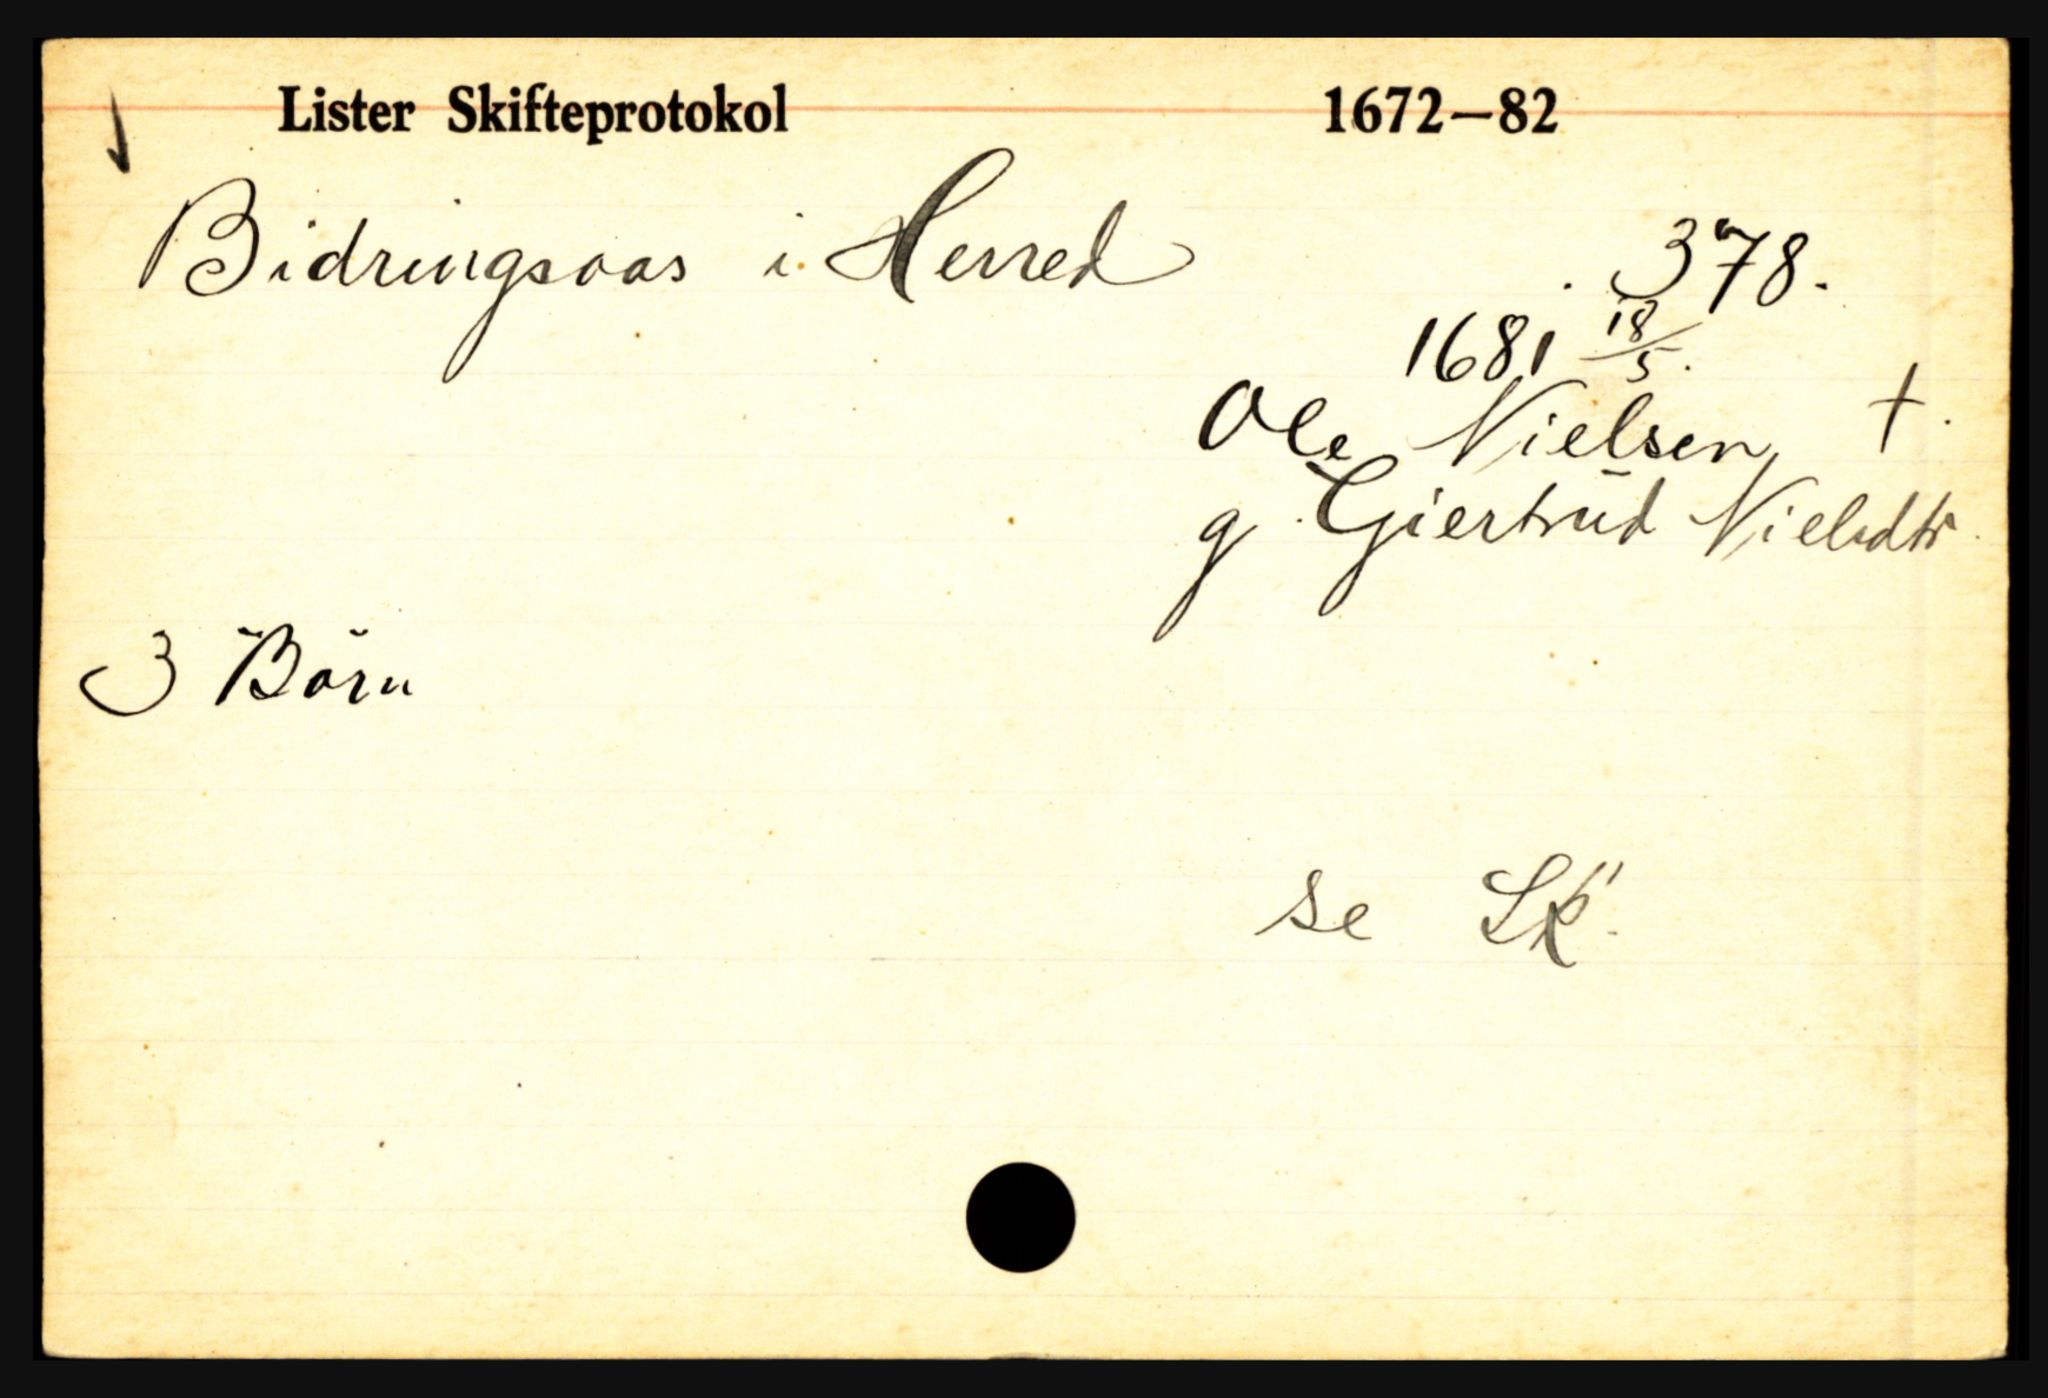 Lister Skifteprotokol 1672–82
Bidringsaas i Herred
378.
1681 18/5.
Ole Nielsen †.
g. Giertrud Nielsdtr.
3 Börn
se Sk.